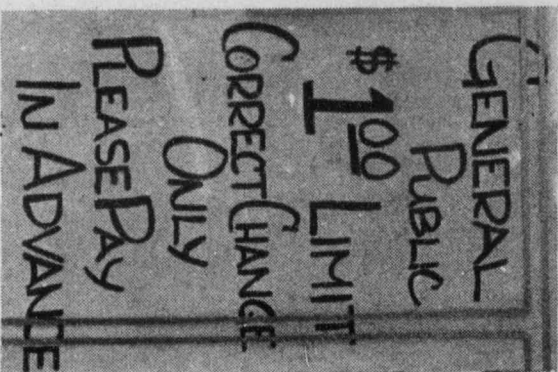 GENERAL
PUBLIC
$1.00 LIMIT
CORRECT CHANGE
ONLY
PLEASE PAY
IN ADVANCE